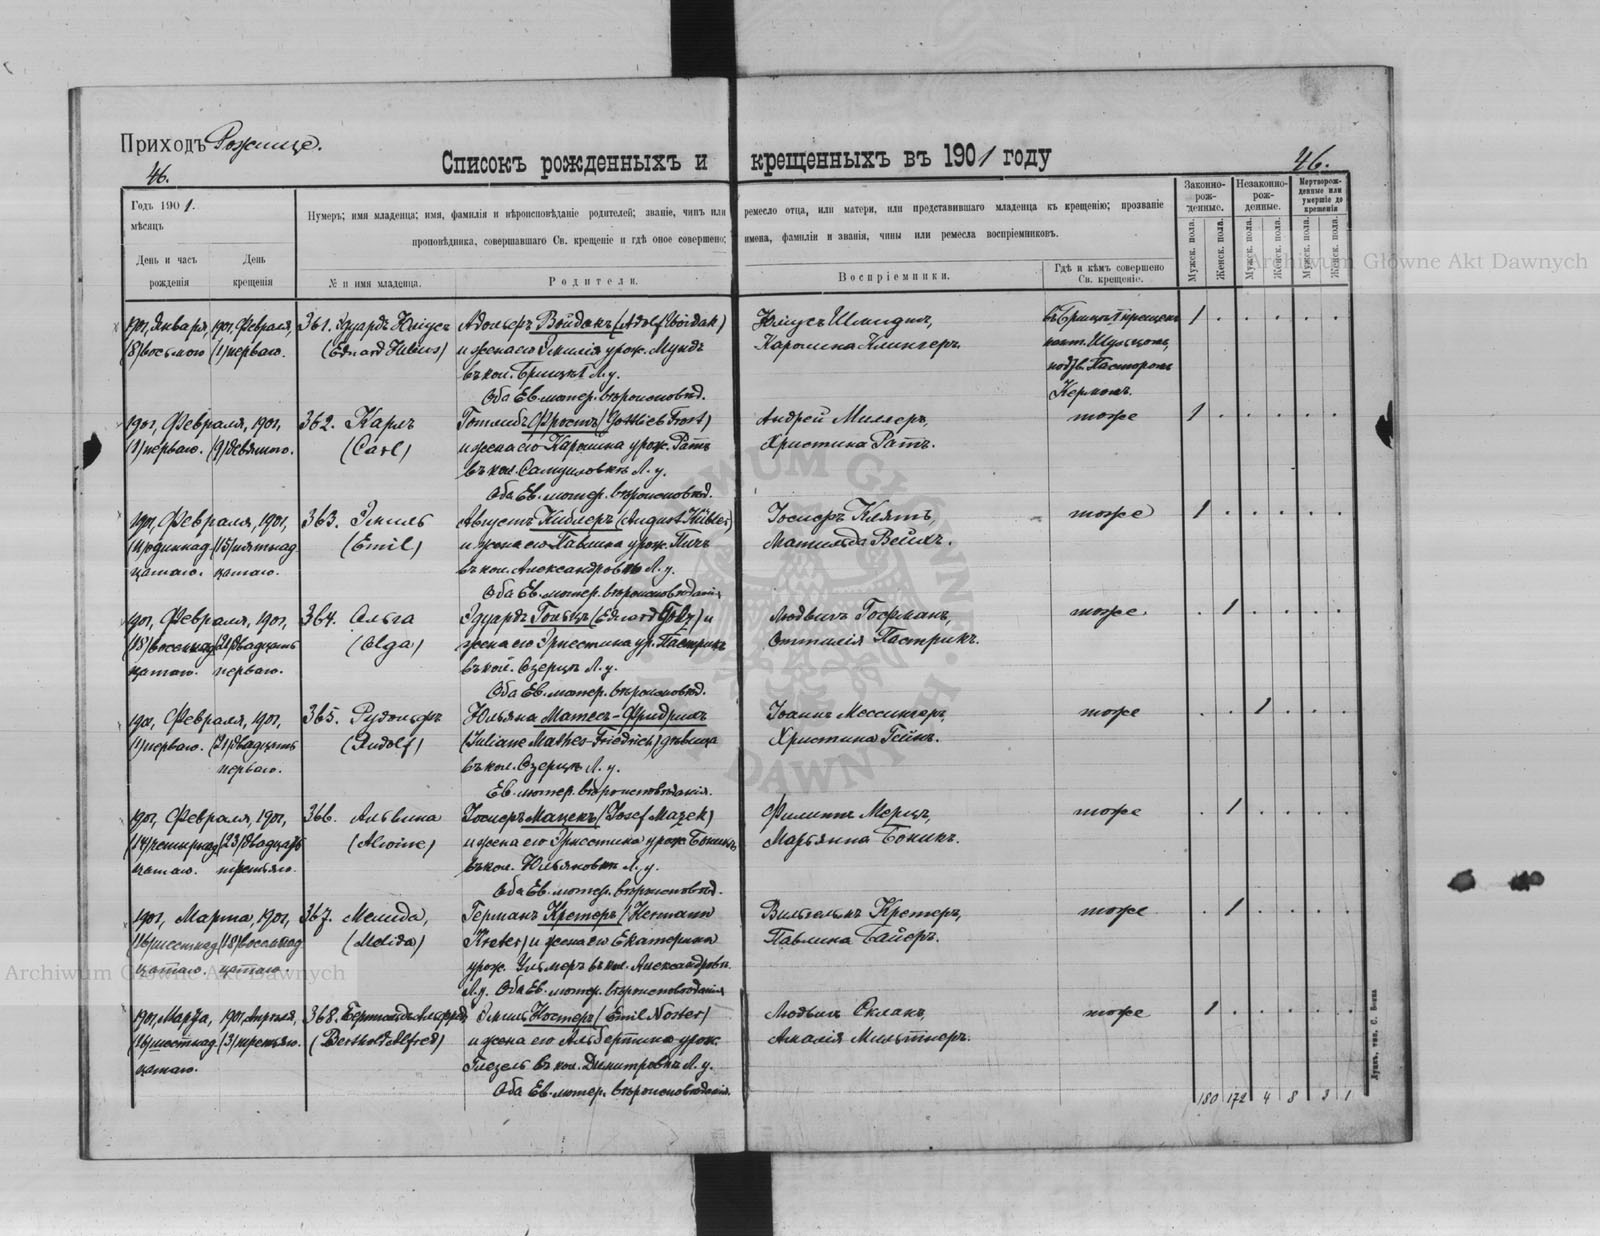 Приходъ Рожище.
46.
Списокъ рожденныхъ и крещенныхъ въ 1901 году
46.
Годъ 1901.
мѣсяцъ
День и часъ рожденія
День крещенія
Нумеръ; имя младенца; имя, фамилія и вѣроисповѣданіе родителей; званіе, чинъ или ремесло отца, или матери, или представившаго младенца къ крещенію; прозваніе
проповѣдника, совершавшаго Св. крещеніе и гдѣ оное совершено; имена, фамиліи и званія, чины или ремесла воспріемниковъ.
№ и имя младенца.
Родители.
Воспріемники.
Гдѣ и кѣмъ совершено Св. крещеніе.
Законно-рож-денные.
Незаконно-рож-денные.
Мертворож-денные или умершіе до крещенія
Мужск. пола.
Женск. пола.
Мужск. пола.
Женск. пола.
Мужск. пола.
Женск. пола.
1901, Января, 1901, Февраля, 361. Эдуардъ Юліусъ Адольфъ Войдакъ (Adolf Woidak) Юліусъ Шмидтъ, 1
(8) восьмого (1) перваго. (Eduard Julius) и жена его Эмилія урож. Мундъ Каролина Клингеръ.
въ кол. Л. у.
Оба Ев. лютер. вѣроисповѣд. Пасторомъ
1901, Февраля, 1901, 362. Карлъ Готлибъ Фростъ (Gottlieb Frost) Андрей Миллеръ, тоже 1
(1) перваго. (9) девятого. (Carl) и жена его Каролина урож. Ратъ Христина Ратъ.
въ кол. Самуиловкѣ Л. у.
Оба Ев. лютер. вѣроисповѣд.
1901, Февраля, 1901, 363. Эмиль Августъ Киблеръ (August Kübler) Іосифъ Клятъ, тоже 1
(11) одиннад (15) пятнад (Emil) и жена его Павлина урож. Матильда Вейхъ.
цатаго. цатаго. въ кол. Александровкѣ Л. у.
Оба Ев. лютер. вѣроисповѣданія
1901, Февраля, 1901, 364. Ольга Эдуардъ Гольцъ (Eduard Golz) и Людвигъ Гофманъ, тоже 1
(18) восемнад (21) двадцать (Olga) жена его Эрнестина ур. Пастрикъ Оттилія Пастрикъ.
цатаго. перваго. въ кол. Озерцѣ Л. у.
Оба Ев. лютер. вѣроисповѣд.
1901, Февраля, 1901, 365. Рудольфъ Юльяна Матесъ-Фридрихъ Іоганъ Мессингеръ, тоже 1
(1) перваго. (21) двадцать (Rudolf) (Juliane Mathes-Friedrich) дѣвица Христина Гейн.
перваго. въ кол. Озерцѣ Л. у.
Ев. лютер. вѣроисповѣданія.
1901, Февраля, 1901, 366. Альвина Іосифъ Мацекъ (Josef Mazek) Филиппъ Мерцъ, тоже 1
(14) четырнад (23) двадцать (Alwine) и жена его Эрнестина урож. Боникъ Марьянна Боникъ.
цатаго. третьяго. въ кол. Юльяновкѣ Л. у.
Оба Ев. лютер. вѣроисповѣд.
1901, Марта, 1901, 367. Мелида, Германъ Кретеръ (Hermann Вильгельмъ Кретеръ, тоже 1
(16) шестнад (18) восемнад (Melida) Kreter) и жена его Екатерина Павлина Байеръ.
цатаго. цатаго. урож. Ульмеръ въ кол. Александровк.
Л. у. Оба Ев. лютер. вѣроисповѣданія
1901, Марта, 1901, Апрѣля, 368. Бертольдъ Альфред Эмиль Ностеръ (Emil Noster) Людвигъ Скланъ, тоже 1
(16) шестнад (3) третьяго. (Berthold Alfred) и жена его Альбертина урож. Амалія Мильтнеръ.
цатаго. Глезель въ кол. Димитровкѣ Л. у.
Оба Ев. лютер. вѣроисповѣданія.
180 172 4 8 3 1
Archiwum Główne Akt Dawnych
Archiwum Główne Akt Dawnych